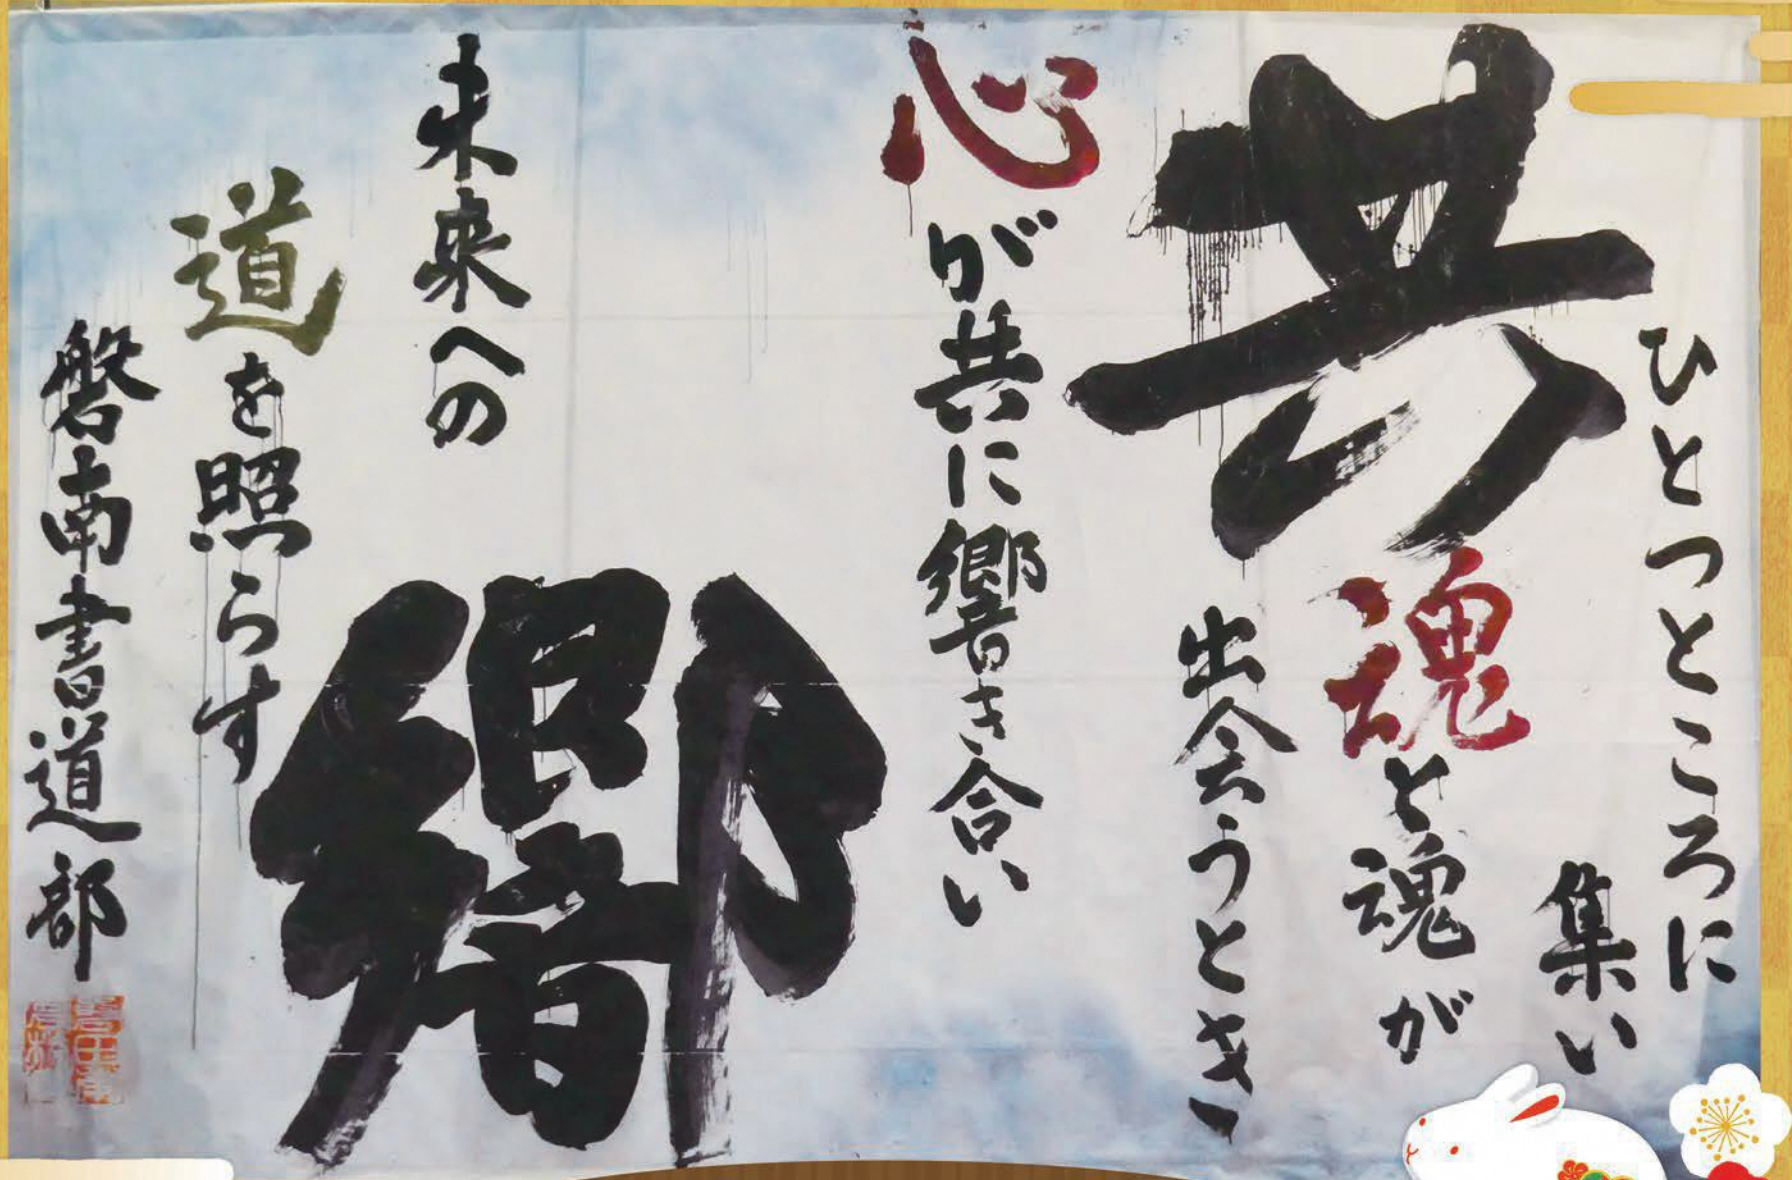 ひとつところに
集い
共
魂と魂が
出会うとき
心が共に響き合い
響
未来への
道を照らす
磐南書道部